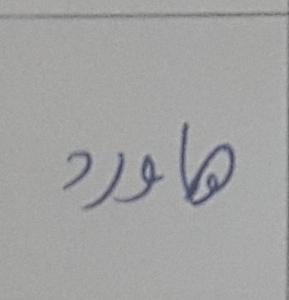 هاورد